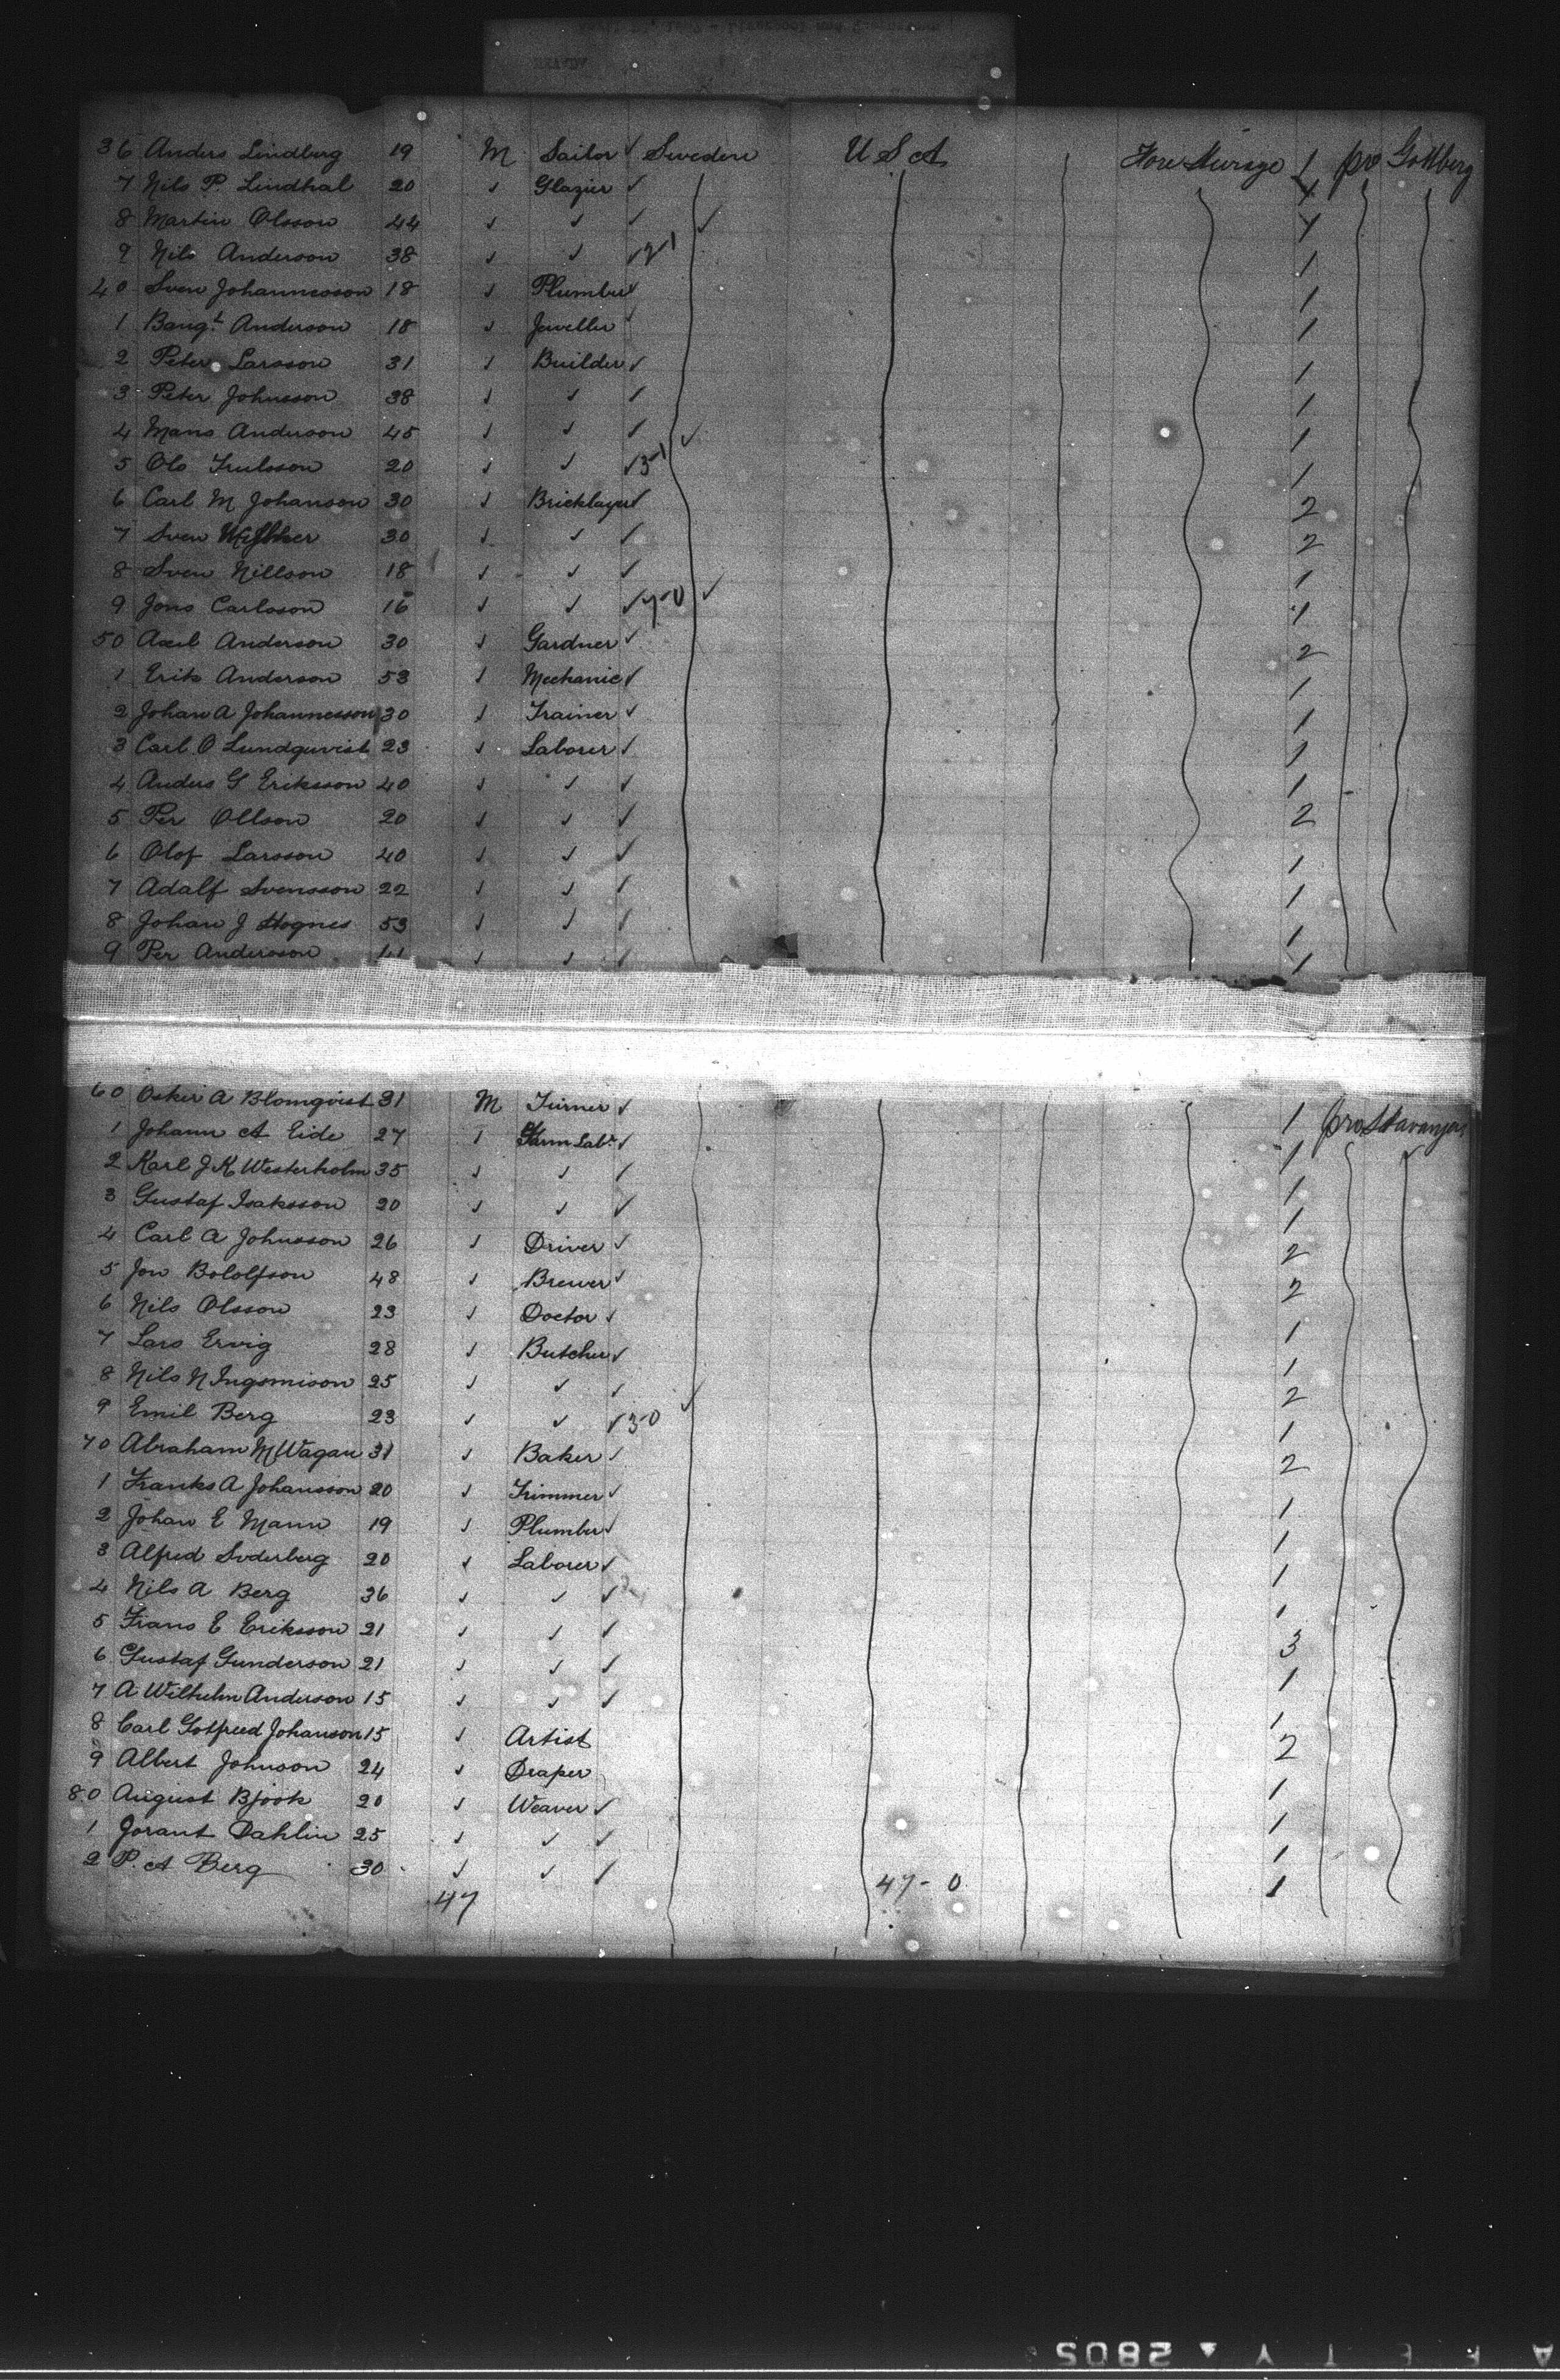 36 Anders Lindberg 19 M Sailor ✓ Sweden U S A Fore Steerage 1 pro Gottberg
7 Nils P. Lindhal 20 ✓ Glazier ✓
8 Martin Olsson 44 ✓ ✓ ✓ ✓
9 Nils Anderson 38 ✓ ✓ ✓ 2-1 1
40 Sven Johannesson 18 ✓ Plumber ✓ 1
1 Bengt Anderson 18 ✓ Jeweller ✓ 1
2 Peter Larsson 31 ✓ Builder ✓ 1
3 Peter Johnsson 38 ✓ ✓ ✓ 1
4 Mans Anderson 45 ✓ ✓ ✓ ✓ 1
5 Ola Trulsson 20 ✓ ✓ ✓ 3-1 1
6 Carl M Johanson 30 ✓ Bricklayer ✓ 2
7 Sven 30 ✓ ✓ ✓ 2
8 Sven Nillson 18 ✓ ✓ ✓ 1
9 Jons Carlsson 16 ✓ ✓ ✓ 4-0 ✓ 1
50 Axel Anderson 30 ✓ Gardner ✓ 2
1 Erik Anderson 53 ✓ Mechanic ✓ 1
2 Johan A Johannesson 30 ✓ Trainer ✓ 1
3 Carl O Lundquvist 23 ✓ Laborer ✓ 1
4 Anders G Eriksson 40 ✓ ✓ ✓ 1
5 Per Ollson 20 ✓ ✓ ✓ 2
6 Olof Larsson 40 ✓ ✓ ✓ 1
7 Adalf Svensson 22 ✓ ✓ ✓ 1
8 Johan J Hognes 53 ✓ ✓ ✓ 1
9 Per Andersson 41 ✓ ✓ ✓ 1
60 Osker A Blomqvist 31 M Turner ✓ 1 pro Stavanger
1 Johann A Eide 27 ✓ Farm Labr ✓ 1
2 Karl J K Westerholm 35 ✓ ✓ ✓ 1
3 Gustaf Isaksson 20 ✓ ✓ ✓ 1
4 Carl A Johnsson 26 ✓ Driver ✓ 2
5 Jon Bololfson 48 ✓ Brewer ✓ 2
6 Nils Olsson 23 ✓ Doctor ✓ 1
7 Lars Ervig 28 ✓ Butcher ✓ 1
8 Nils N Ingomison 25 ✓ ✓ ✓ ✓ 2
9 Emil Berg 23 ✓ ✓ ✓ 3-0 1
70 Abraham M Wagan 31 ✓ Baker ✓ 2
1 Franks A Johansson 20 ✓ Trimmer ✓ 1
2 Johan E Mann 19 ✓ Plumber ✓ 1
3 Alfred Soderberg 20 ✓ Laborer ✓ 1
4 Nils A Berg 36 ✓ ✓ ✓ 1
5 Frans E Eriksson 21 ✓ ✓ ✓ 3
6 Gustaf Gunderson 21 ✓ ✓ ✓ 1
7 A Wilhelm Anderson 15 ✓ ✓ ✓ 1
8 Carl Gotfreed Johanson 15 ✓ Artist 2
9 Albert Johnson 24 ✓ Draper 1
80 August Bjook 20 ✓ Weaver ✓ 1
1 Jorant Dahlin 25 ✓ ✓ ✓ 1
2 P. A Berg 30 ✓ ✓ ✓ 1
47 47-0
A F E T Y ▲ 2805